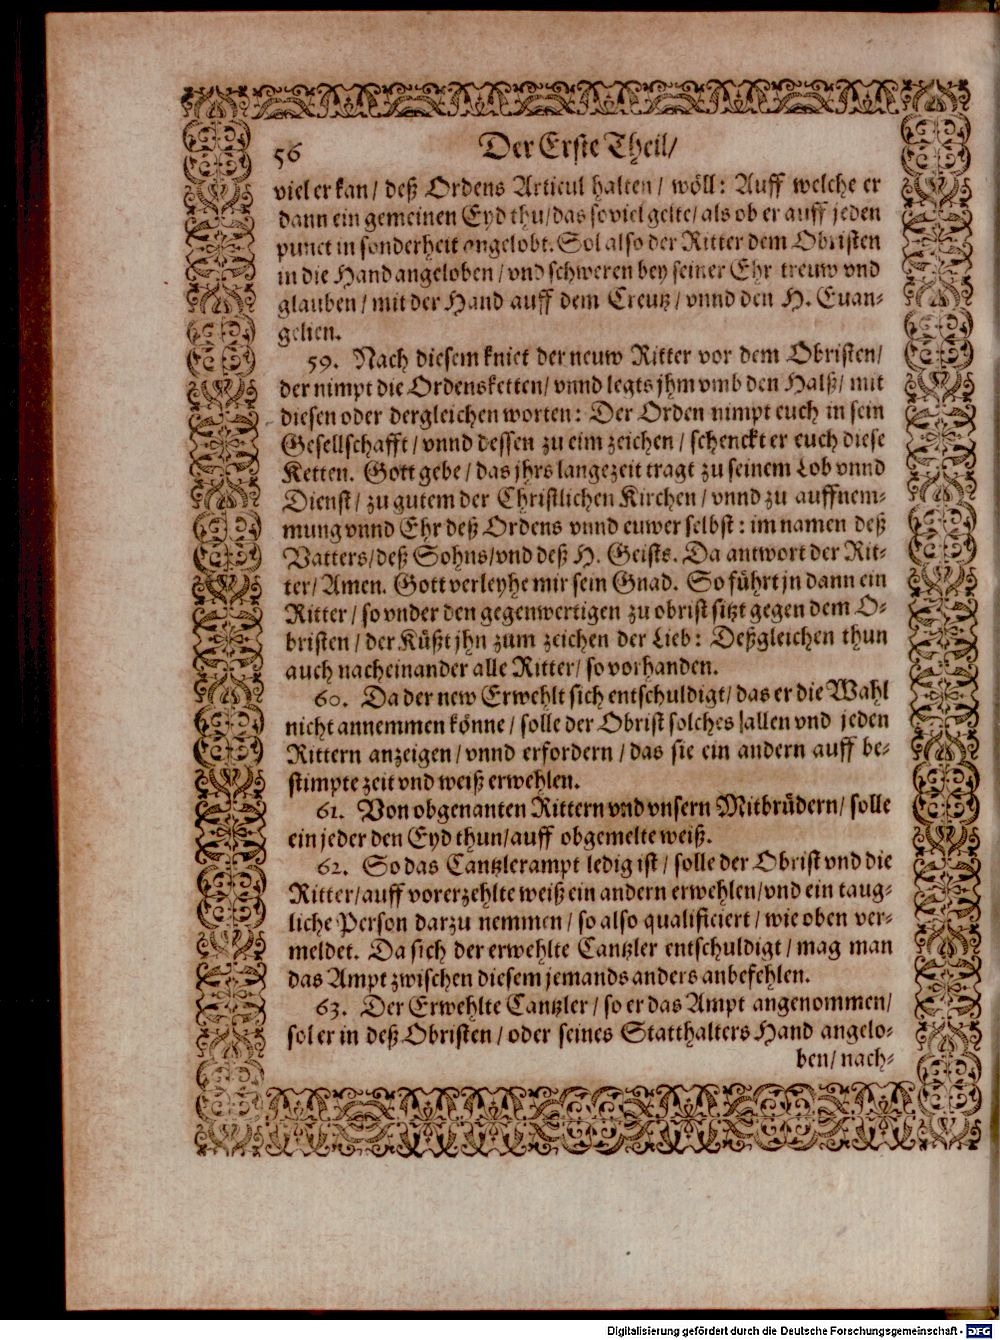 56 Der Erste Theil/
viel er kan/ deß Ordens Articul halten/ wöll: Auff welche er
dann ein gemeinen Eyd thu/das so viel gelte/als ob er auff jeden
punct in sonderheit angelobt. Sol also der Ritter dem Obristen
in die Hand angeloben/ vnd schweren bey seiner Ehr treuw vnd
glauben/ mit der Hand auff dem Creutz/ vnnd den H. Euan-
gelien.
59. Nach diesem kniet der neuw Ritter vor dem Obristen/
der nimpt die Ordensketten/ vnnd legts jhm vmb den Halß/ mit
diesen oder dergleichen worten: Der Orden nimpt euch in sein
Gesellschafft/ vnnd dessen zu eim zeichen/ schenckt er euch diese
Ketten. Gott gebe/ das jhrs lange zeit tragt zu seinem Lob vnnd
Dienst/ zu gutem der Christlichen Kirchen/ vnnd zu auffnem-
mung vnnd Ehr deß Ordens vnnd euwer selbst: im namen deß
Vatters/deß Sohns/vnd deß H. Geists. Da antwort der Rit-
ter/ Amen. Gott verleyhe mir sein Gnad. So führt jn dann ein
Ritter/ so vnder den gegenwertigen zu obrist sitzt gegen dem O-
bristen/ der Küßt jhn zum zeichen der Lieb: Deßgleichen thun
auch nacheinander alle Ritter/ so vorhanden.
60. Da der new Erwehlt sich entschuldigt/ das er die Wahl
nicht annemmen könne/ solle der Obrist solches allen vnd jeden
Rittern anzeigen/ vnnd erfordern/ das sie ein andern auff be-
stimpte zeit vnd weiß erwehlen.
61. Von obgenanten Rittern vnd vnsern Mitbrüdern/ solle
ein jeder den Eyd thun/auff obgemelte weiß.
62. So das Cantzlerampt ledig ist/ solle der Obrist vnd die
Ritter/auff vorerzehlte weiß ein andern erwehlen/vnd ein taug-
liche Person darzu nemmen/ so also qualificiert/ wie oben ver-
meldet. Da sich der erwehlte Cantzler entschuldigt/ mag man
das Ampt zwischen diesem jemands anders anbefehlen.
63. Der Erwehlte Cantzler/ so er das Ampt angenommen/
sol er in deß Obristen/ oder seines Statthalters Hand angelo-
ben/ nach-
Digitalisierung gefördert durch die Deutsche Forschungsgemeinschaft - DFG